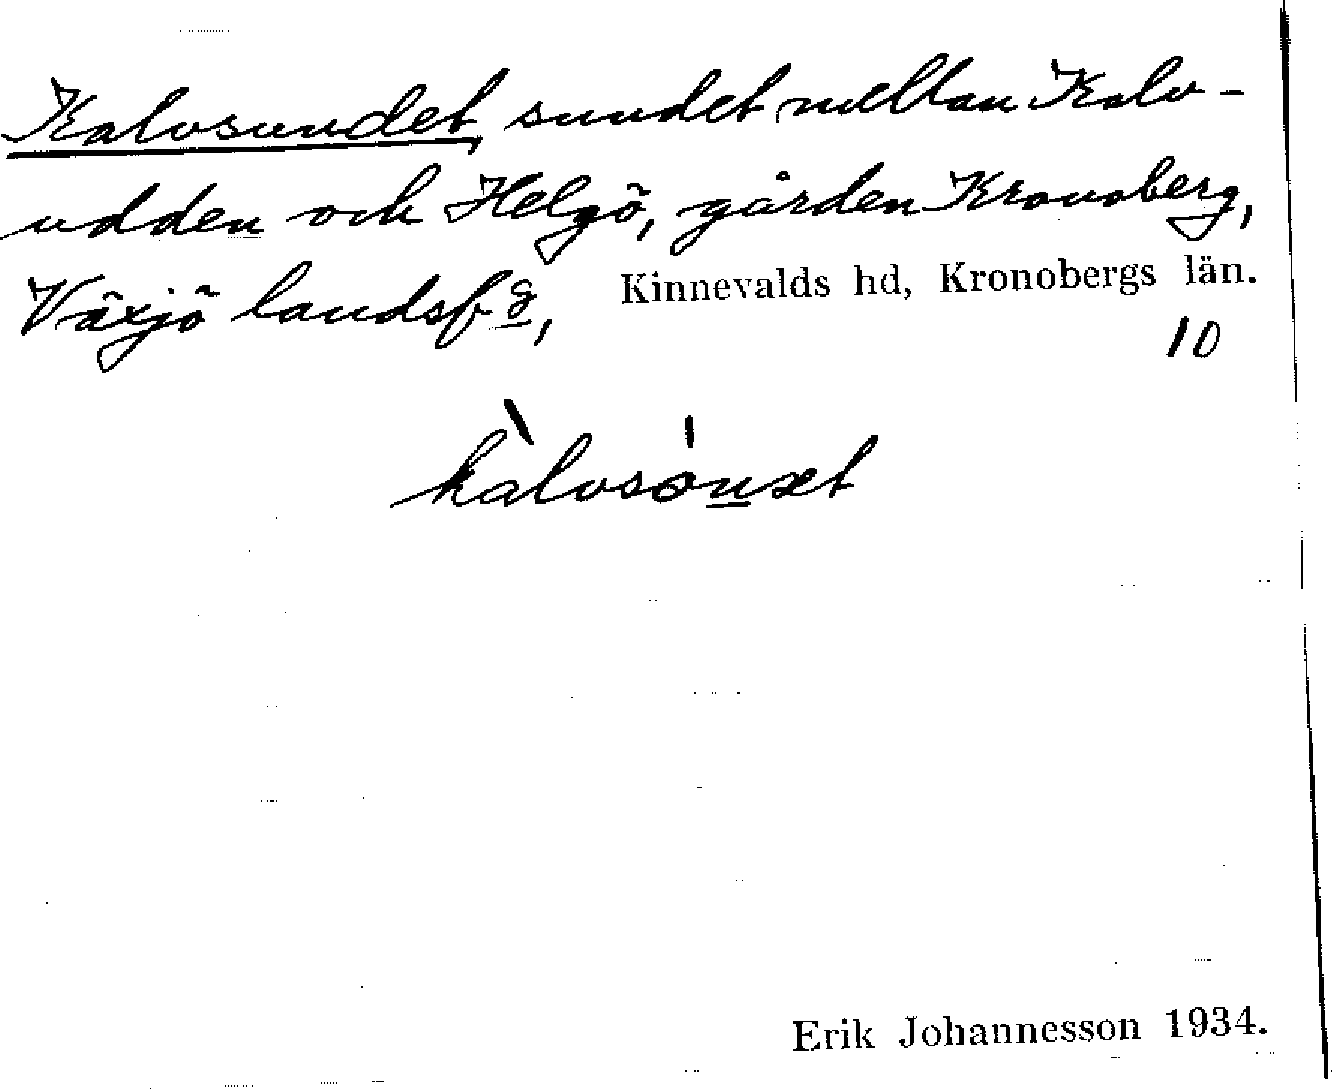 Kalvsundet, sundet mellan Kalv-
udden och Helgö, gården Kronoberg,
Växjö landsf g, Kinnevalds hd, Kronobergs län.
10
kàlvsónət
Erik Johannesson 1934.